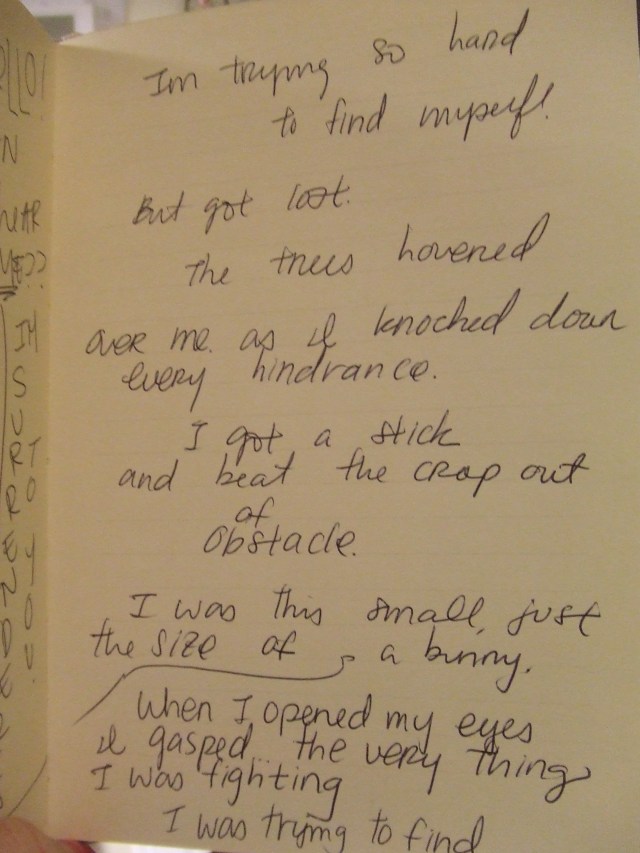 Im trying so hard
to find myself!
But got lost.
The trees hovered
over me. as I knocked down
every hindrance.
I got a stick
and beat the crap out
of
obstacle.
I was this small, just
the size of a bunny.
When I opened my eyes
I gasped... the very thing
I was fighting
I was trying to find